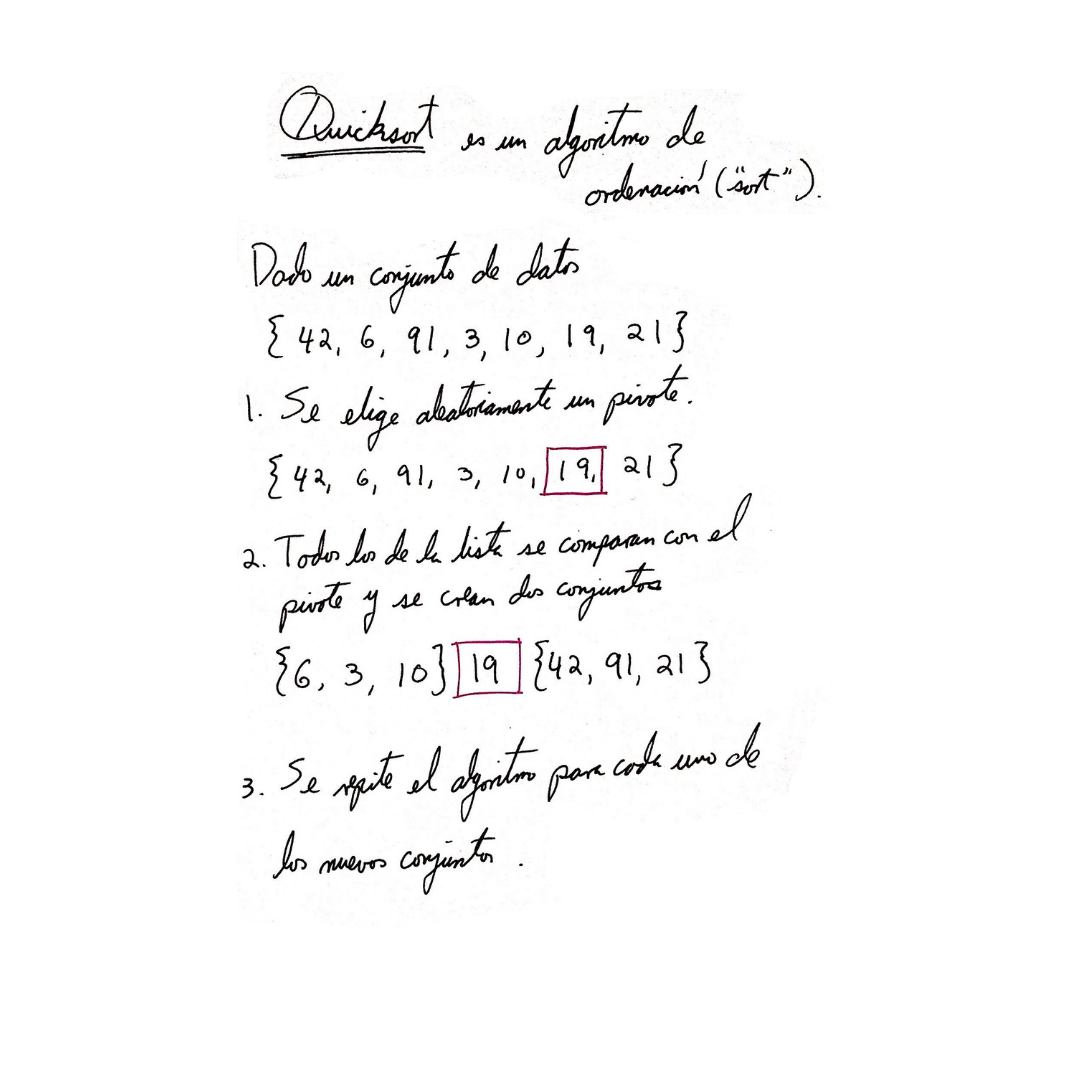 Quicksort es un algoritmo de
ordenación ("sort").
Dado un conjunto de datos
{ 42, 6, 91, 3, 10, 19, 21 }
1. Se elige aleatoriamente un pivote.
{ 42, 6, 91, 3, 10, 19, 21 }
2. Todos los de la lista se comparan con el
pivote y se crean dos conjuntos
{6, 3, 10} 19 {42, 91, 21 }
3. Se repite el algoritmo para cada uno de
los nuevos conjuntos.